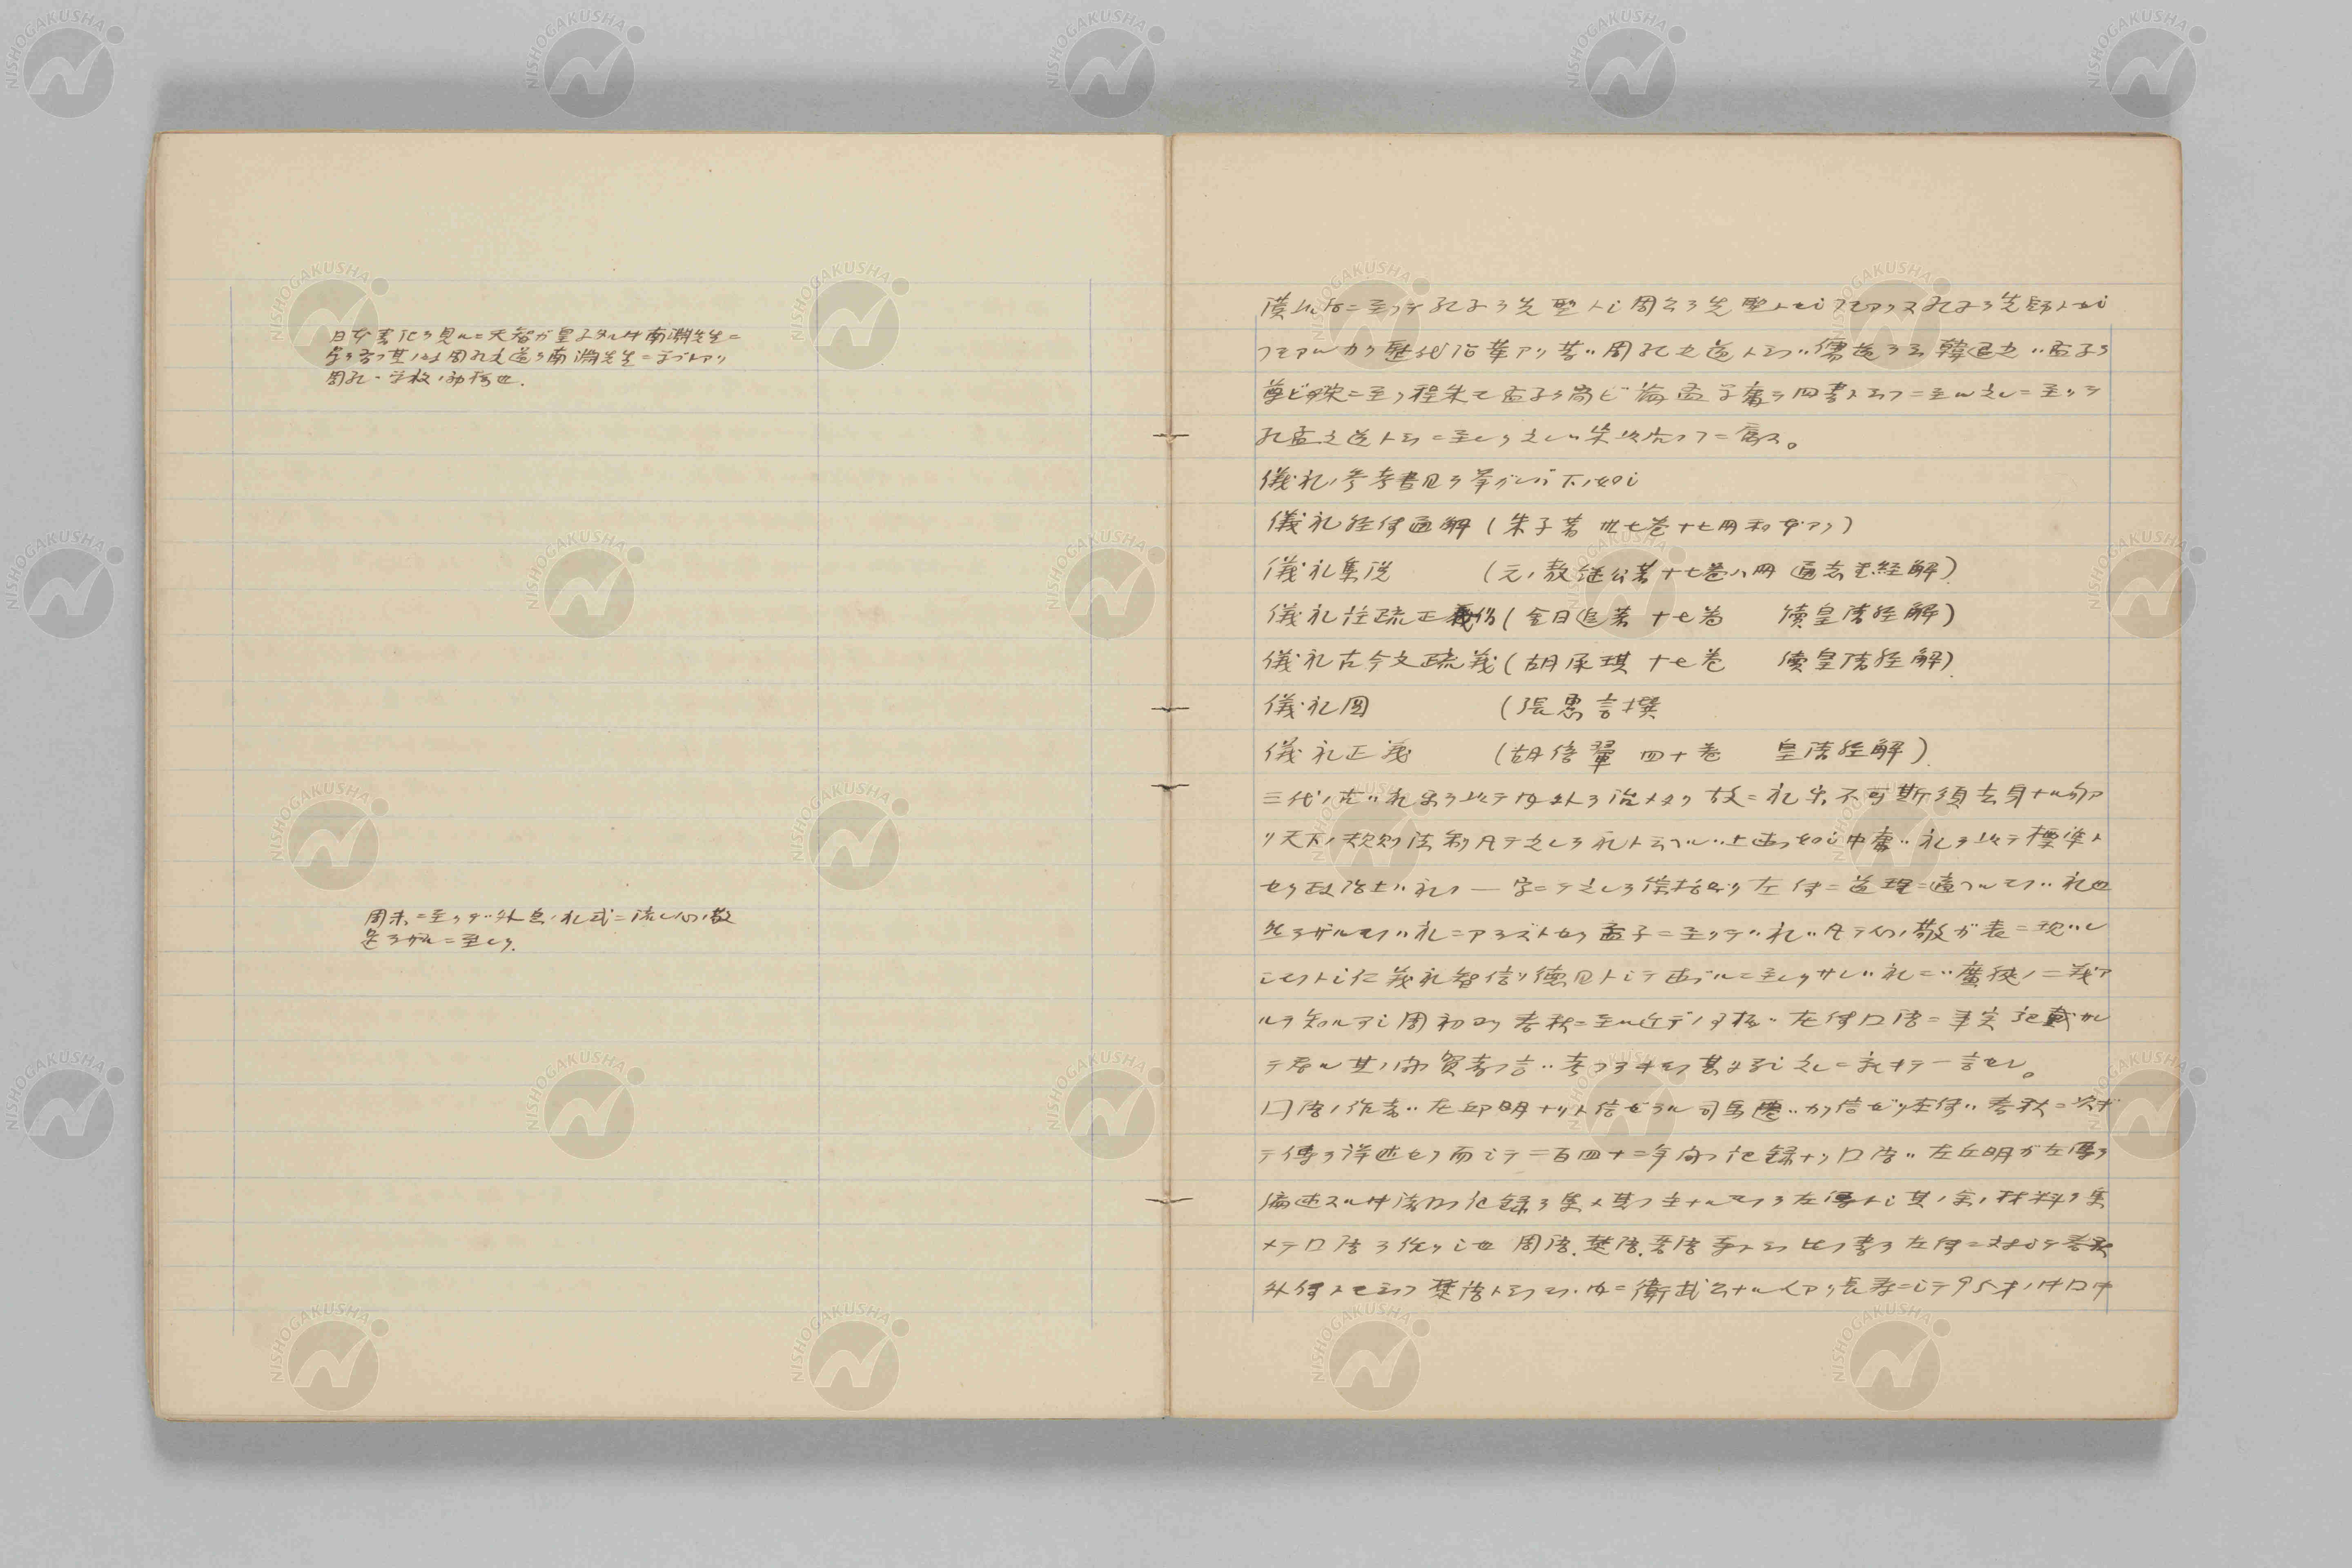 日本書紀ヲ見ルニ天智ガ皇子タル時南淵先生ニ
周孔之道ヲ南淵先生ニ学ブトアリ
周孔ハ学校ノ
周末ニ至リテハ外包ノ礼式ニ流レ心ノ敬
足ラザルニ至レリ.
漢以后ニ至リテ孔子ヲ先聖トシ周公ヲ先聖トセシコトアリ又孔子ヲ先師トセシ
コトアルカラ歴代沿革アリ昔ハ周孔之道ト云ヒ 儒道ヲ云 韓退之ハ孟子ヲ
尊ビ宋ニ至リ程朱モ孟子ヲ尚ビ論孟学庸ヲ四書ト云フニ至ル之レニ至リテ
孔孟之道ト云ニ至レリ之レハ朱以后ノコニ属ス。
儀礼ノ参考書目ヲ挙グレバ下ノ如シ
儀礼経伝通解(朱子著 卅七巻十七冊和本アリ)
儀礼集説 (元ノ敖継公著十七巻八冊 通志堂経解)
儀礼注疏正譌(金日追著 十七巻 続皇清経解)
儀礼古今文疏義(胡承珙 十七巻 続皇清経解)
儀礼図 (張恵言撰
儀礼正義 (胡培翬 四十巻 皇清経解)
三代ノ古ハ礼楽ヲ以テ内外ヲ治メタリ故ニ礼楽不可斯須去身ナル句ア
リ天下ノ規則法制凡テ之レヲ礼ト云フハ上述ノ如シ中庸ハ礼ヲ以テ標準ト
セリ政治上ハ礼ノ一字ニテ之レヲ保括セリ左伝ニ道理ニ適フルモノハ礼也
然ラザルモノハ礼ニアラズトセリ孟子ニ至リテハ礼ハ凡テ心ノ敬ガ表ニ現ハレ
シモノトシ仁義礼智信ノ徳目トシテ述ブルニ至レリサレバ礼ニハ廣狭ノ二義ア
ルヲ知ルベシ周初ヨリ春秋ニ至ル迄デノ 左伝国語ニ事実記載サレ
テ居ル其ノ内賢者ノ言ハ
国語ノ作者ハ左丘明ナリト信ゼラル司馬遷ハカク信ゼリ左伝ハ春秋ニ次ギ
テ傳ヲ詳述セリ而シテ二百四十二年間ノ記録ナリ国語ハ左丘明ガ左傳ヲ
編述スル時諸国ノ記録ヲ集メ其ノ主ナルモノヲ左傳トシ其ノ余ノ材料ヲ集
メテ国語ヲ作リシ也 周語.楚語.晋語等ト云ヒ此ノ書ヲ左伝ニ対シテ春秋
外伝トモ云フ楚語ト云フモノノ内ニ衛武公ナル人アリ長寿ニシテ95才ノ時国中